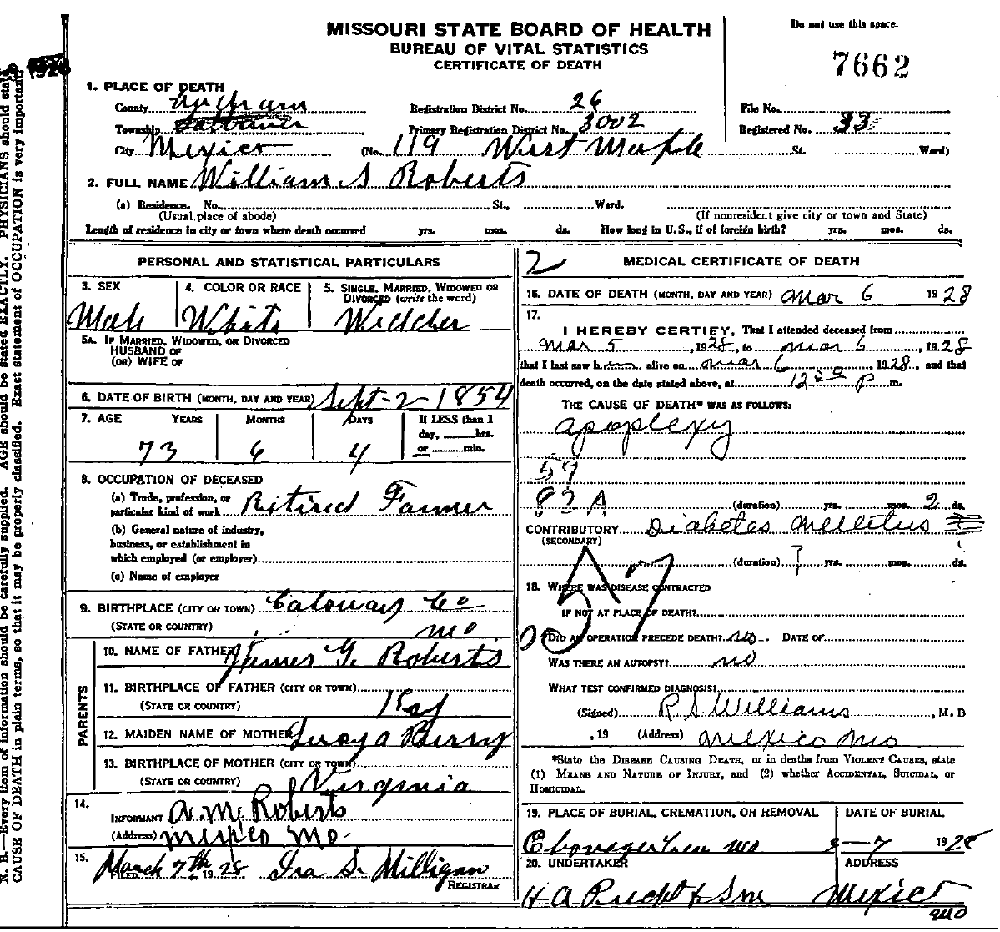 MISSOURI STATE BOARD OF HEALTH
BUREAU OF VITAL STATISTICS
CERTIFICATE OF DEATH
Do not use this space.
7662
1. PLACE OF DEATH
County Audrain Registration District No. 26 File No.
Township Primary Registration District No. 3002 Registered No. 33
City Mexico (No. 119 West Maple St. Ward)
2. FULL NAME William S Roberts
(a) Residence. No. St., Ward.
(Usual place of abode) (If nonresident give city or town and State)
Length of residence in city or town where death occurred yrs. mos. ds. How long in U.S., if of foreign birth? yrs. mos. ds.
PERSONAL AND STATISTICAL PARTICULARS
3. SEX 4. COLOR OR RACE 5. SINGLE, MARRIED, WIDOWED OR
DIVORCED (write the word)
Male White
5A. IF MARRIED, WIDOWED, OR DIVORCED
HUSBAND OF
(OR) WIFE OF
6. DATE OF BIRTH (MONTH, DAY AND YEAR) Sept-2-1854
7. AGE YEARS MONTHS DAYS If LESS than 1
day, hrs.
or min.
73 6 4
8. OCCUPATION OF DECEASED
(a) Trade, profession, or
particular kind of work Retired Farmer
(b) General nature of industry,
business, or establishment in
which employed (or employer)
(c) Name of employer
9. BIRTHPLACE (CITY OR TOWN) Caloway Co
(STATE OR COUNTRY) mo
PARENTS
10. NAME OF FATHER James G. Roberts
11. BIRTHPLACE OF FATHER (CITY OR TOWN)
(STATE OR COUNTRY) Ky
12. MAIDEN NAME OF MOTHER Berry
13. BIRTHPLACE OF MOTHER (CITY OR TOWN)
(STATE OR COUNTRY) Virginia
14.
INFORMANT A. M. Roberts
(Address) Mexico Mo.
15. March 7th 1928 Ira S. Milligan
REGISTRAR
2 MEDICAL CERTIFICATE OF DEATH
16. DATE OF DEATH (MONTH, DAY AND YEAR) Mar 6 1928
17.
I HEREBY CERTIFY, That I attended deceased from
Mar 5, 1928, to Mar 6, 1928
that I last saw h alive on Mar 6, 1928, and that
death occurred, on the date stated above, at 12 P m.
THE CAUSE OF DEATH* WAS AS FOLLOWS:
apoplexy
59
82 A (duration) yrs. mos. 2 ds.
CONTRIBUTORY Diabetes Mellitus
(SECONDARY)
(duration) ? yrs. mos. ds.
18. WHERE WAS DISEASE CONTRACTED
IF NOT AT PLACE OF DEATH?
DID AN OPERATION PRECEDE DEATH? no. DATE OF
WAS THERE AN AUTOPSY? no
WHAT TEST CONFIRMED DIAGNOSIS?
(Signed) R S Williams, M. D
, 19 (Address) Mexico Mo
*State the DISEASE CAUSING DEATH, or in deaths from VIOLENT CAUSES, state
(1) MEANS AND NATURE OF INJURY, and (2) whether ACCIDENTAL, SUICIDAL, or
HOMICIDAL.
19. PLACE OF BURIAL, CREMATION, OR REMOVAL DATE OF BURIAL
mo 3-7 1928
20. UNDERTAKER ADDRESS
H A & Son Mexico
mo
N. B.—Every item of information should be carefully supplied. AGE should be stated EXACTLY. PHYSICIANS should state
CAUSE OF DEATH in plain terms, so that it may be properly classified. Exact statement of OCCUPATION is very important.